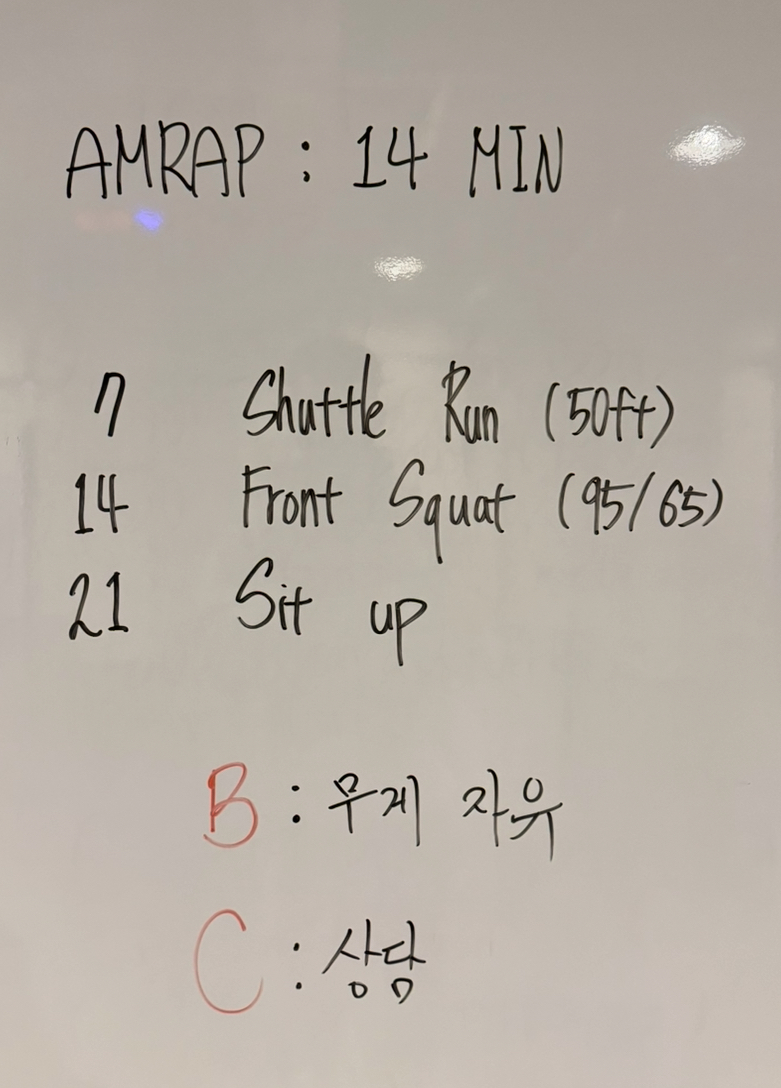 AMRAP : 14 MIN
7 Shuttle Run (50ft)
14 Front Squat (95/65)
21 Sit up
B : 무게 자유
C : 상담